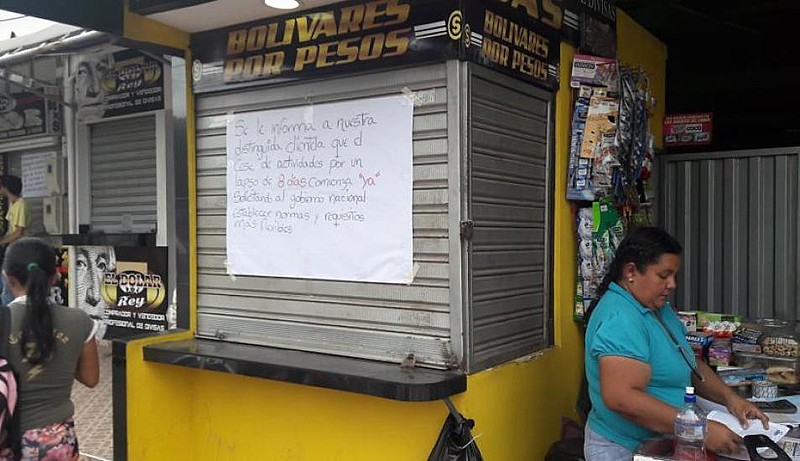 BOLIVARES
POR PESOS
$
$
BOLIVARES
POR PESOS
Se le informa a nuestra
distinguida clientela que el
Cese de actividades por un
lapso de 8 días comienza "ya"
Solicitando al gobierno nacional
establecer normas y requisitos
más flexibles
EL DOLAR
Rey
COMPRADOR Y VENDEDOR
PROFESIONAL DE DIVISAS
Rey
PROFESIONAL DE DIVISAS
DIVISAS